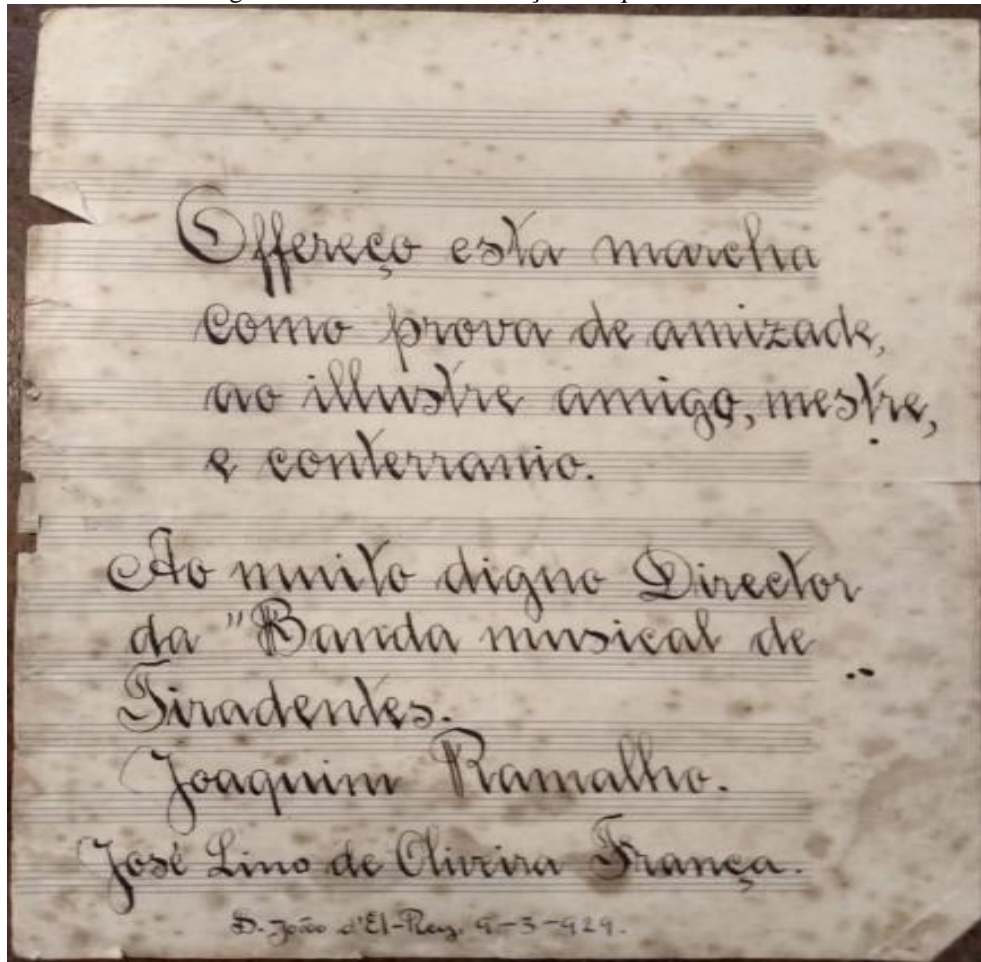 Offereço esta marcha
como prova de amizade,
ao illustre amigo, mestre,
e conterranio.
Ao muito digno Director
da "Banda musical de
Tiradentes.
Joaquim Ramalho.
José Lino de Oliveira França.
S. João d'El-Rey. 9-3-929.